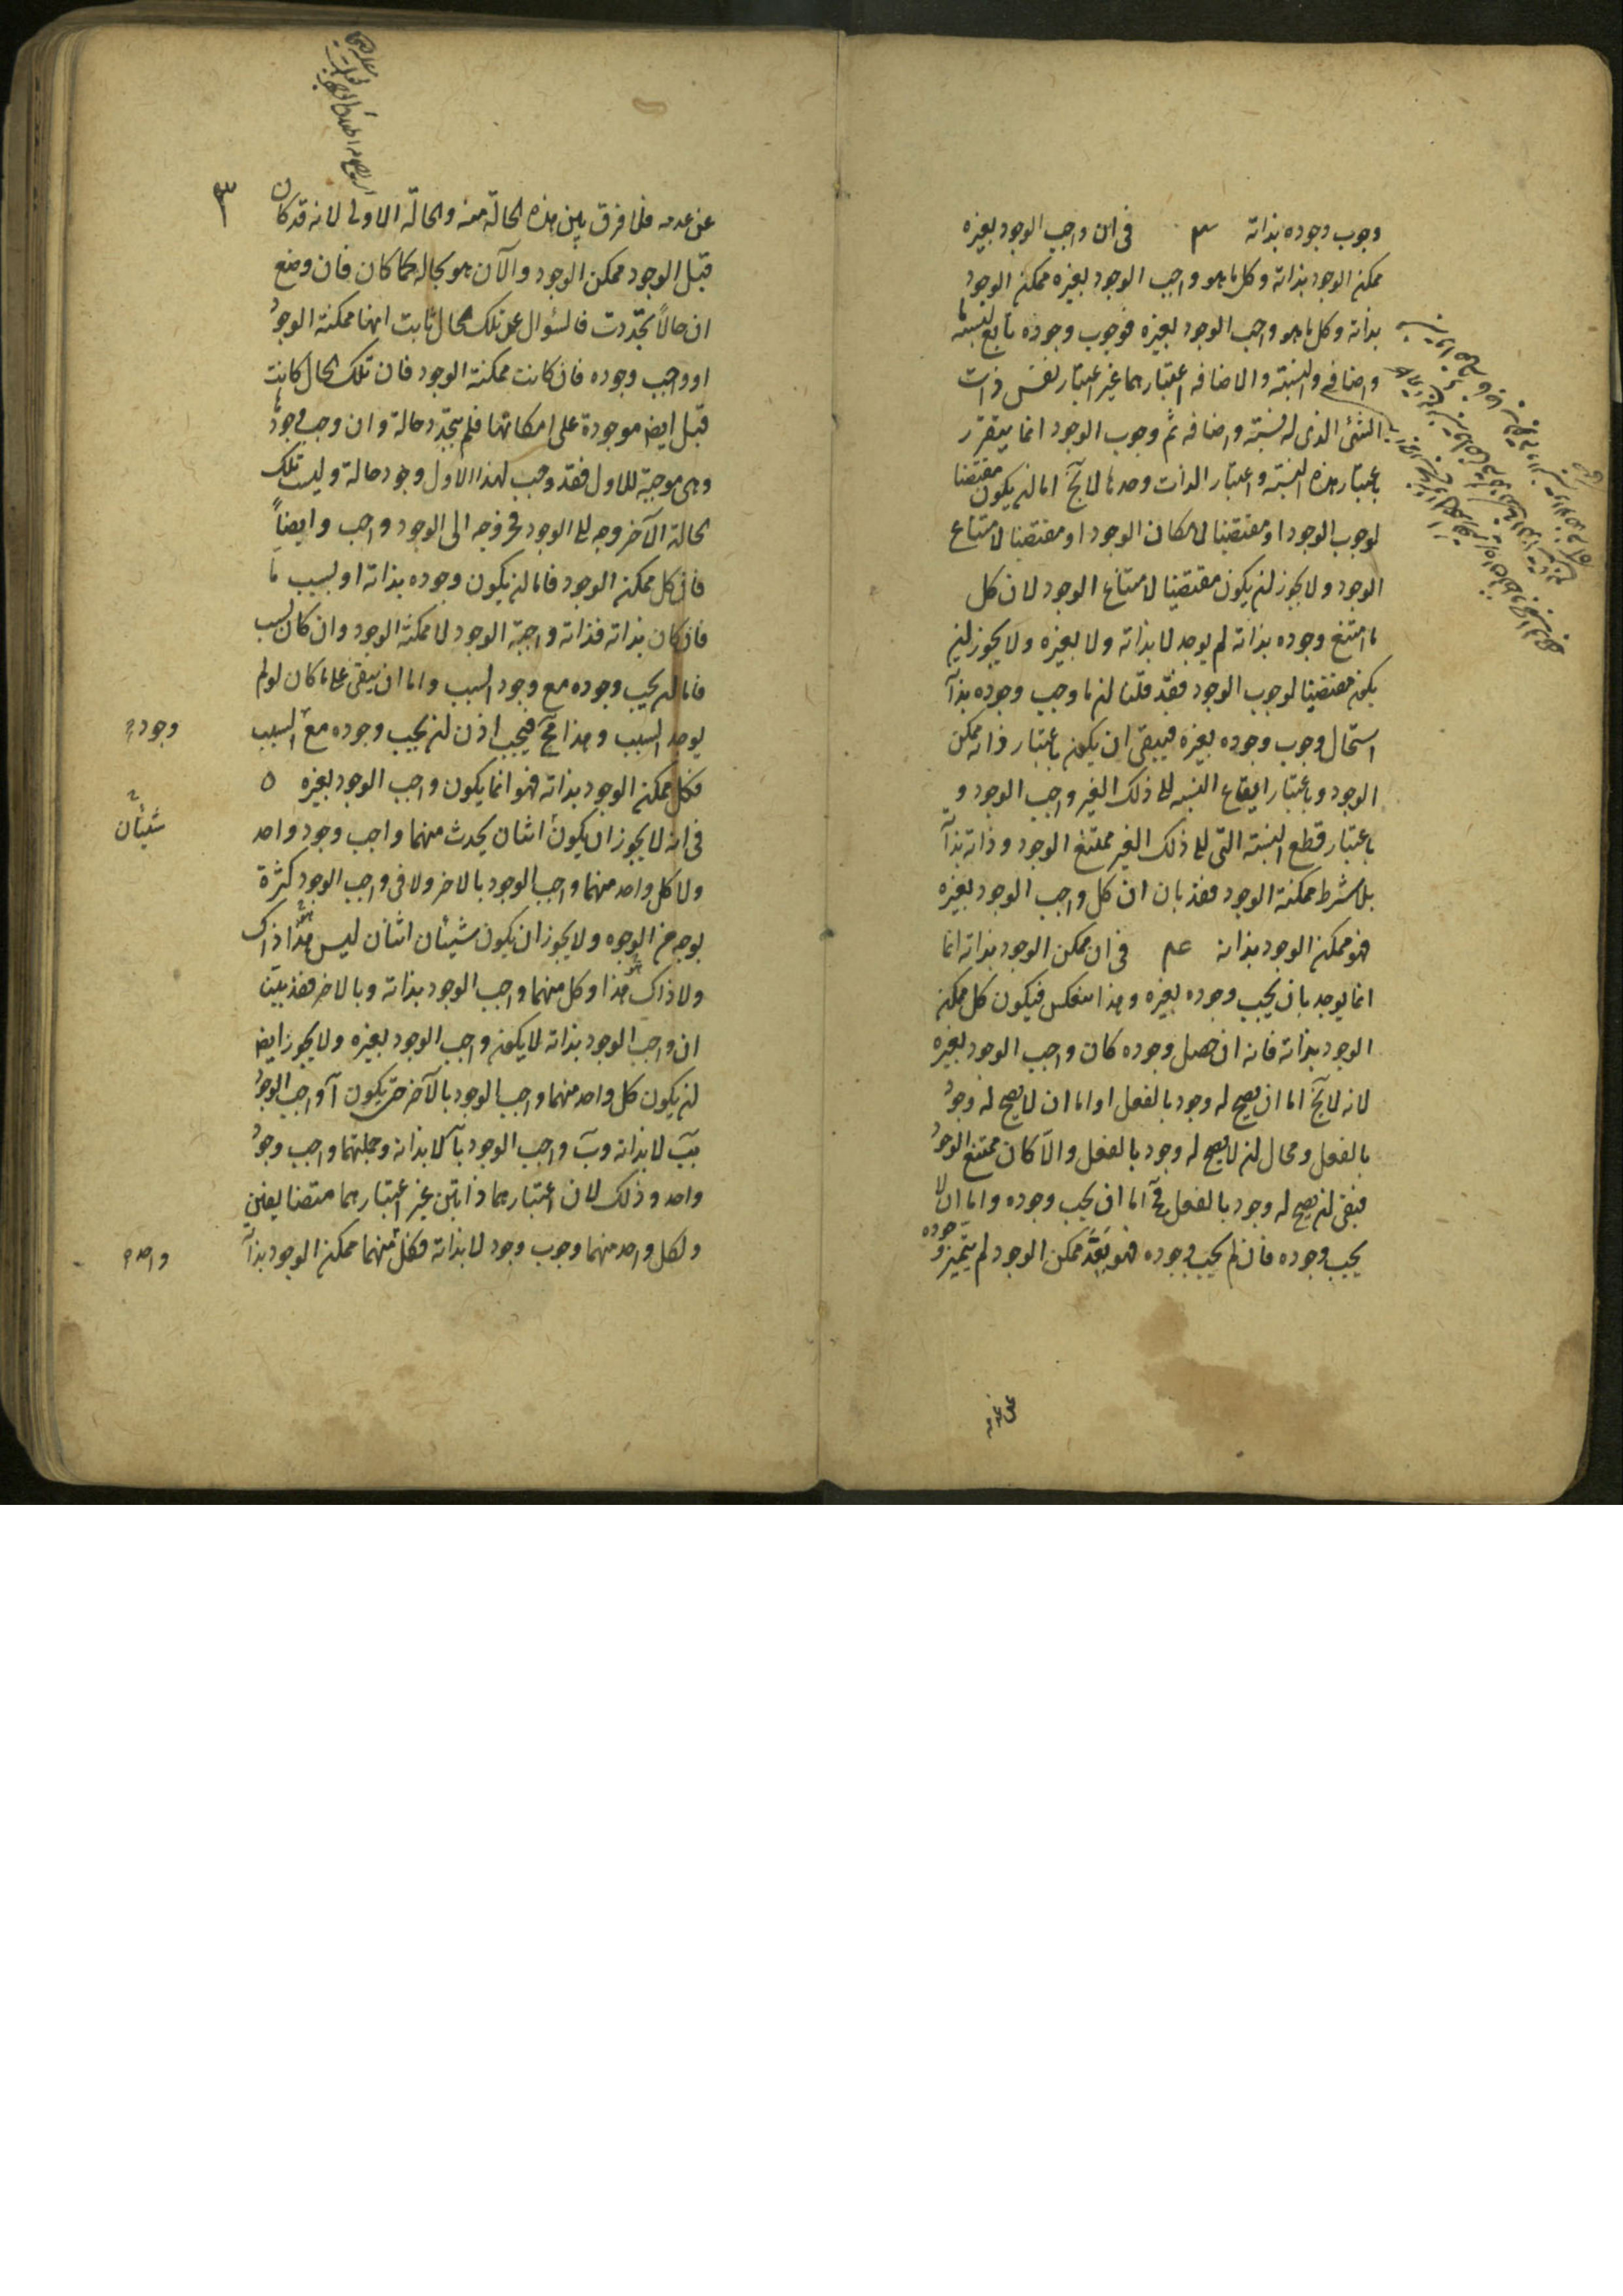 وجوب وجوده بذاته ٣ فى ان واجب الوجود بغيره
ممكن الوجود بذاته وكل ما هو واجب الوجود بغيره ممكن الوجود
بذاته وكل ما هو واجب الوجود بغيره فوجوب وجوده تابع لنسبة ما
واضافة والنسبة والاضافه اعتبارهما غير اعتبار نفس ذات
الشئ الذى له نسبة واضافه ثم وجوب الوجود انما يتقرر
باعتبار هذه النسبة واعتبار الذات وحدها لا يخ اما ان يكون مقتضيا
لوجوب الوجود او مقتضيا لامكان الوجود او مقتضيا لامتناع
الوجود ولا يجوز ان يكون مقتضيا لامتناع الوجود لان كل
ما امتنع وجوده بذاته لم يوجد لا بذاته ولا بغيره ولا يجوز ان
يكون مقتضيا لوجوب الوجود فقد قلنا ان ما وجب وجوده بذاته
استحال وجوب وجوده بغيره فيبقى ان يكون باعتبار ذاته ممكن
الوجود وباعتبار ايقاع النسبه الى ذلك الغير واجب الوجود و
باعتبار قطع النسبة التى الى ذلك الغير ممتنع الوجود وذاته بذاته
بلا شرط ممكنة الوجود فقد بان ان كل واجب الوجود بغيره
فهو ممكن الوجود بذاته ع فى ان ممكن الوجود بذاته انما
انما يوجد بان يجب وجوده بغيره وهذا ينعكس فيكون كل ممكن
الوجود بذاته فانه ان حصل وجوده كان واجب الوجود بغيره
لانه لا يخ اما ان يصح له وجود بالفعل او اما ان لا يصح له وجود
بالفعل ومحال ان لا يصح له وجود بالفعل والا كان ممتنع الوجود
فبقى ان يصح له وجود بالفعل فح اما ان يجب وجوده واما ان لا
يجب وجوده فان لم يجب وجوده فهو بعد ممكن الوجود لم يتميز وجوده
على عدمه
٣
عن عدمه فلا فرق بين هذه الحالة منه والحالة الاولى لانه قد كان
قبل الوجود ممكن الوجود والآن هو بحاله كما كان فان وضع
ان حالاً تجددت فالسؤال عن تلك الحال ثابت انها ممكنة الوجود
او واجب وجوده فان كانت ممكنة الوجود فان تلك الحال كانت
قبل ايضا موجودة على امكانها فلم يتجدد حالة وان وجب وجودها
وهى موجبة للاول فقد وجب لهذا الاول وجود حالة وليست تلك
الحالة الا خروجه الى الوجود فخروجه الى الوجود واجب وايضاً
فان كل ممكن الوجود فاما ان يكون وجوده بذاته او بسبب ما
فان كان بذاته فذاته واجبة الوجود لا ممكنة الوجود وان كان بسبب
فاما ان يجب وجوده مع وجود السبب واما ان يبقى على ما كان لو لم
يوجد السبب وهذا مح فيجب اذن ان يجب وجوده مع السبب
وجود
فكل ممكن الوجود بذاته فهو انما يكون واجب الوجود بغيره ٥
فى انه لا يجوز ان يكون اثنان يحدث منهما واجب وجود واحد
شيئان
ولا كل واحد منهما واجب الوجود بالاخر ولا فى واجب الوجود كثرة
بوجه من الوجوه ولا يجوز ان يكون شيئان اثنان ليس هذا ذاك
ولا ذاك هذا وكل منهما واجب الوجود بذاته وبالاخر فقد بين
ان واجب الوجود بذاته لا يكون واجب الوجود بغيره ولا يجوز ايضا
ان يكون كل واحد منهما واجب الوجود بالآخر حتى يكون آ واجب الوجود
ببَ لا بذاته وبَ واجب الوجود بآ لا بذاته وجملتهما واجب وجود
واحد وذلك لان اعتبارهما ذاتين غير اعتبارهما متضايفين
ولكل واحد منهما وجوب وجود لا بذاته فكل منهما ممكن الوجود بذاته
واحد